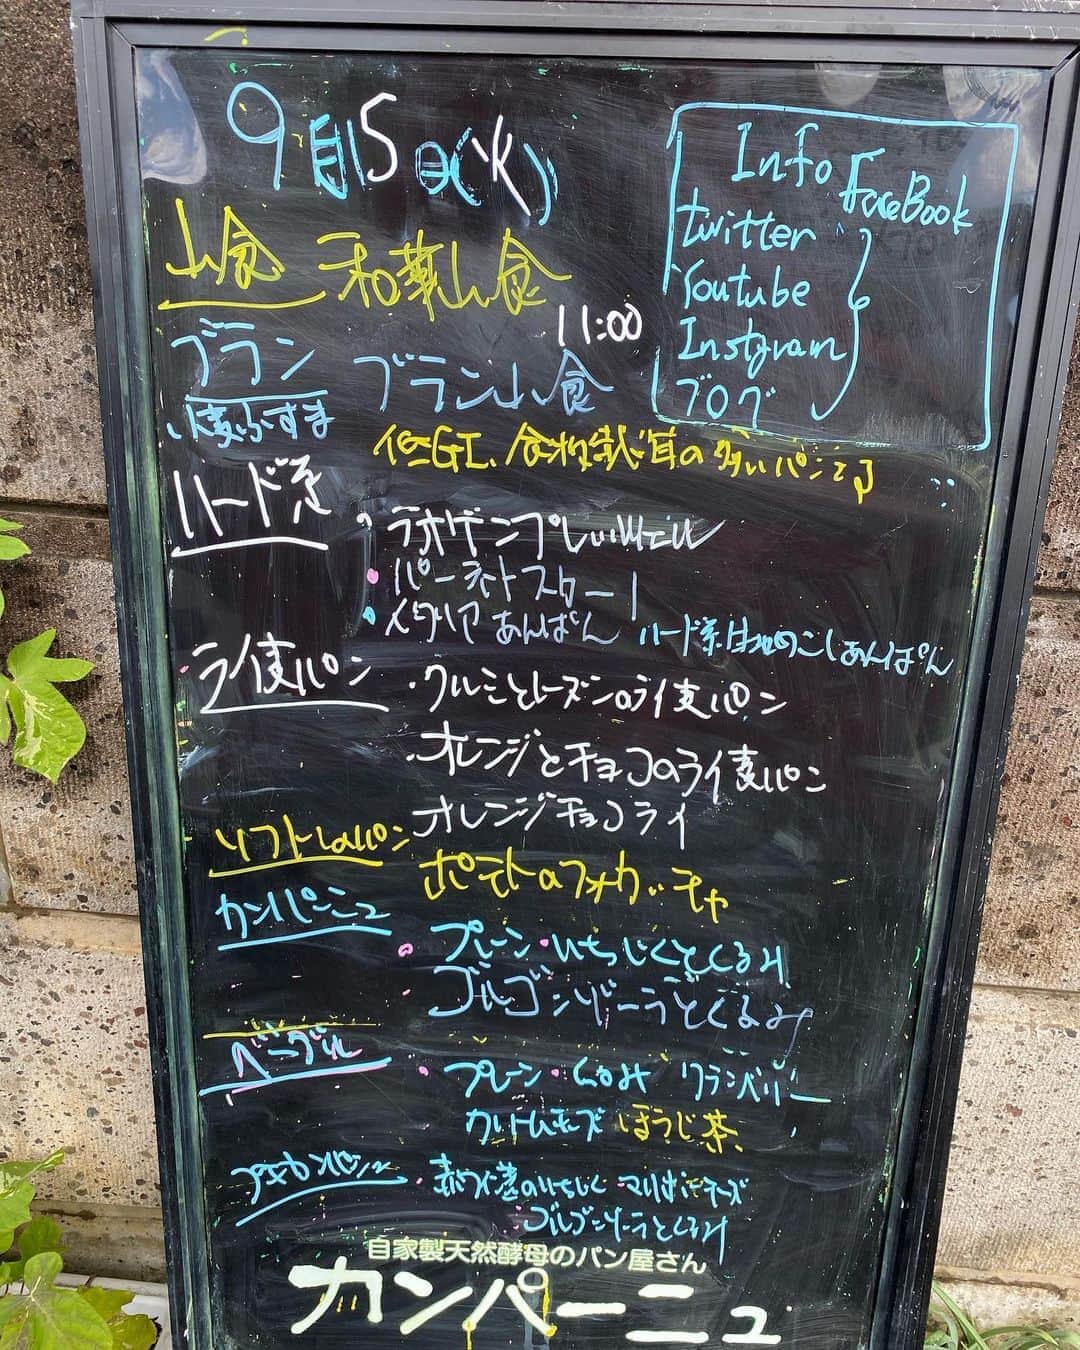 9月5日(火)
Info
FaceBook
twitter
Youtube
Instgram
ブログ
山食 和華山食
11:00
ブラン ブラン山食
小麦ふすま
低GI、食物繊維の多いパンです
ハード系
ラオゲンプレッツェル
・パーネトスカーノ
・イタリアあんぱん ハード系生地のこしあんぱん
・ライ麦パン ・クルミとレーズンのライ麦パン
・オレンジとチョコのライ麦パン
オレンジチョコライ
ソフトなパン ポテトのフォカッチャ
カンパーニュ ・プレーン・いちじくとくるみ
ゴルゴンゾーラとくるみ
ベーグル ・プレーン・くるみ クランベリー
クリームチーズ ほうじ茶
プチカンパーニュ 赤ワイン漬のいちじく
ゴルゴンゾーラとくるみ
自家製天然酵母のパン屋さん
カンパーニュ